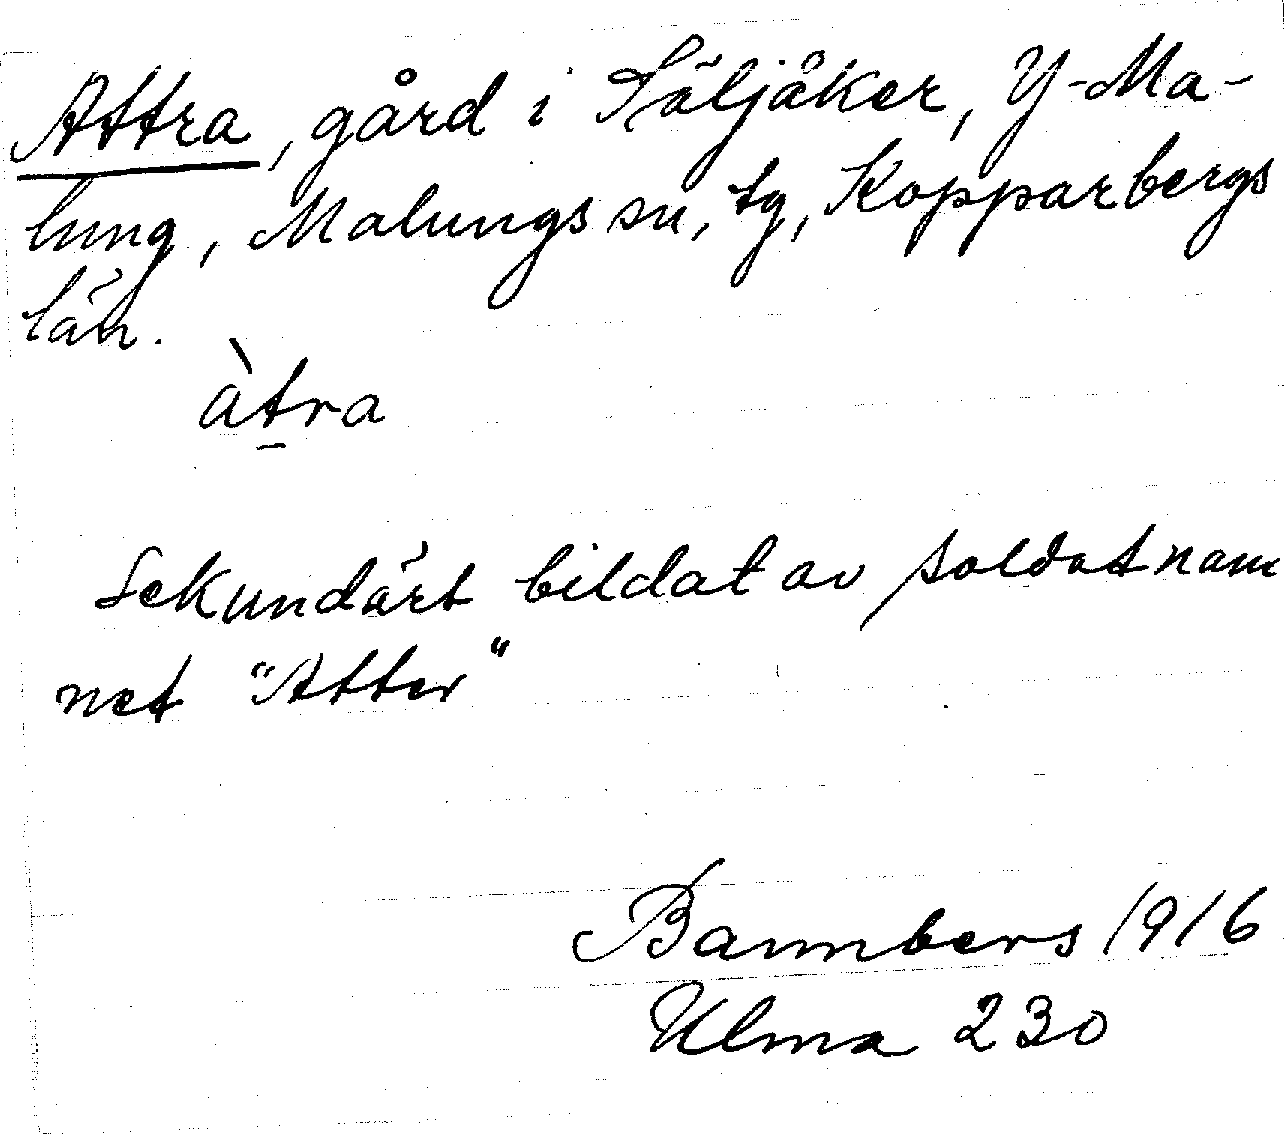 Attra, gård i Säljåker, Y-Ma-
lung, Malungs sn, tg, Kopparbergs
län.
àt̠ra
Sekundärt bildat av soldatnam
net "Atter"
Bannbers 1916
Ulma 230